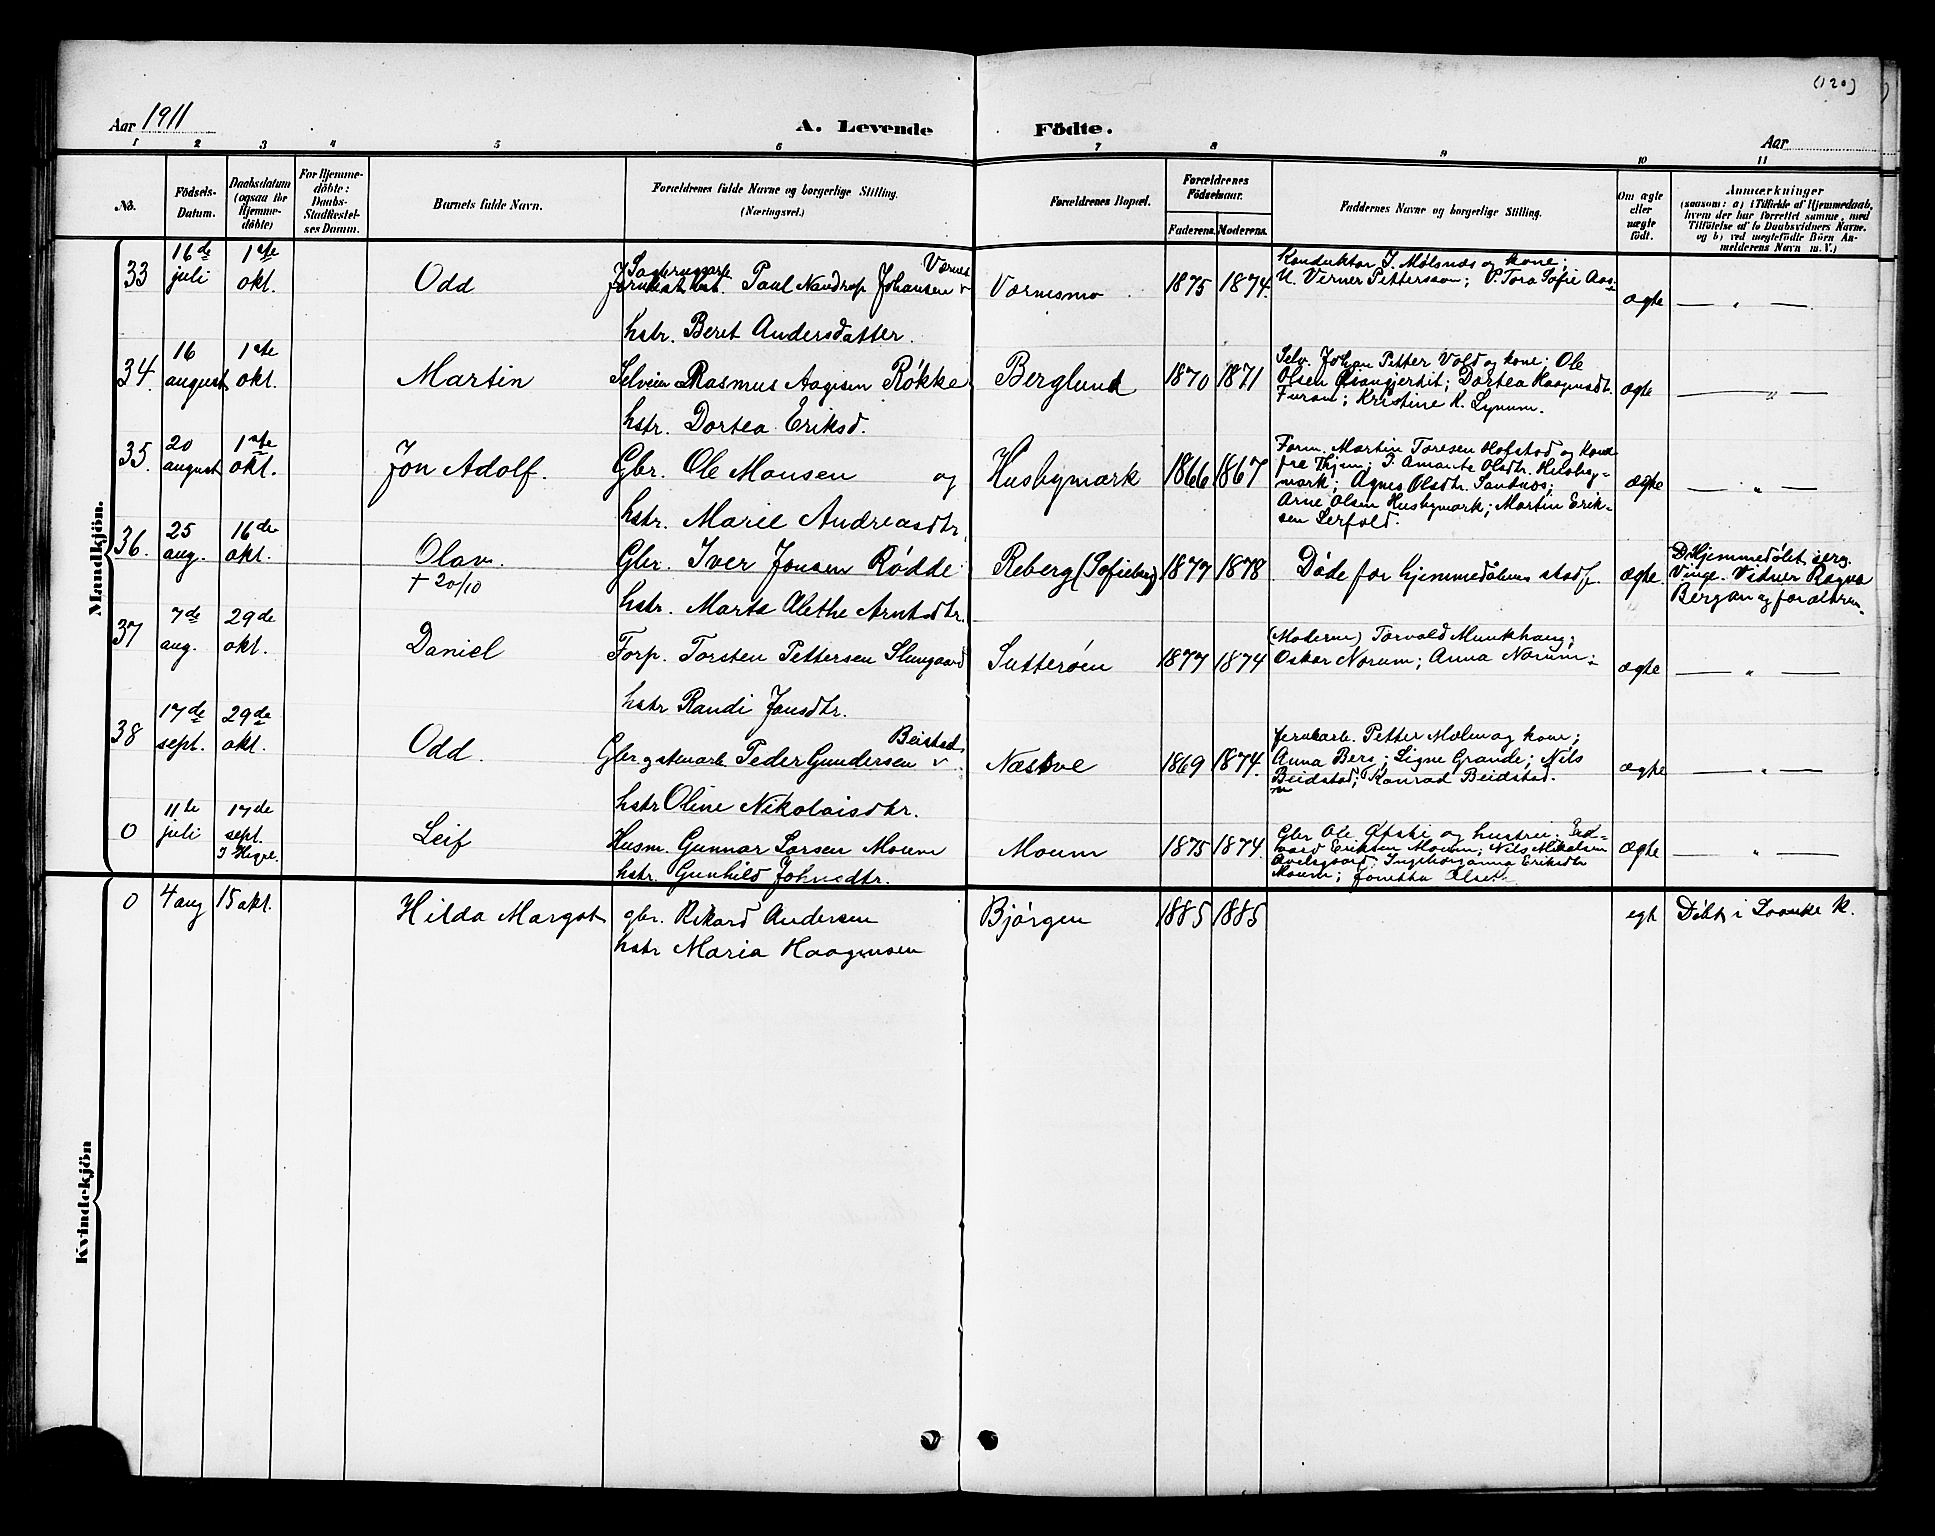 (120)
Aar 1911
A. Levende Födte.
Aar
1 2 3 4 5 6 7 8 9 10 11
No.
Födsels-
Datum.
Daabsdatum
(ogsaa for
Hjemme-
döbte)
For Hjemme-
döbte:
Daabs-
Stadfæstel-
ses Datum.
Barnets fulde Navn.
Forældrenes fulde Navne og borgerlige Stilling.
(Næringsvei.)
Forældrenes Bopæl.
Forældrenes
Födselsaar.
Faderens. Moderens.
Faddernes Navne og borgerlige Stilling.
Om ægte
eller
uægte
födt.
Anmærkninger
(saasom: a) i Tilfælde af Hjemmedaab,
hvem der har forrettet samme, med
Tilföielse af to Daabsvidners Navne.
og b) ved uægtefödte Börn An-
melderens Navn m. V.)
Mandkjön.
33
16de
juli
1ste
okt.
Odd
Paul Nandrup Johansen
hstr. Beret Andersdatter.
Værnesmo
1875 1874.
Konduktør J. Mølsnæs og kone;
U. Verner Pettersson; P. Tora Sofie Aas.
ægte
— " —
34.
16
august
1ste
okt.
Martin
Selveier Rasmus Aagesen Røkke
hstr. Dortea Eriksd.
Berglund
1870 1871
Selv. Johan Petter Vold og kone; Ole
Olsen Dortea Haagensdt.
Furan; Kristine K. Lynum.
ægte
— " —
35.
20
august
1ste
okt.
Jon Adolf.
Gbr. Ole Monsen og
hstr. Marie Andreasdtr.
Husbymark
1866 1867
Form. Martin Toresen Hofstad og kone
fra Thjem; P. Amanta Olsdtr. Husby-
mark; Agnes Olsdtr. Sandnæs;
Arne Olsen Husbymark; Martin Erik-
sen Lerfald.
ægte
— " —
36.
25
aug.
16de
okt.
Olav.
+ 20/10
Gbr. Iver Jonsen Rødde
hstr. Marta Alethe Arntsdtr.
Reberg (Sofieberg)
1877 1878
Døde før hjemmedåbens stadf.
ægte.
D. Hjemmedøbt serg.
Vinge. Vidner Ragna
Bergan og forældren.
37
7de
aug.
29de
okt.
Daniel
Forp. Torsten Pettersen Slungaard
hstr Randi Jonsdtr.
Sutterøen
1877 1874
(Moderen) Torvald Munkhaug;
Oskar Norum; Anna Norum.
ægte
— " —
38
17de
sept.
29de
okt.
Odd.
Gbr. og stenarb. Peder Gundersen Beistad
hstr Oline Nikolaisdtr.
Næskve
1869 1874.
Jernbarb. Petter Molen og kone;
Anna Berg; Signe Grande; Nils
Beidstad; Konrad Beidstad.
ægte
— " —
0
11te
juli
17de
sept.
I Hegge.
Leif
Husm. Gunnar Larsen Moum
hstr. Gunhild Johnsdtr.
Moum
1875 1874.
Gbr Ole Øfsti og hustru; Ed-
vard Eriksen Moum; Nils Mikalsen
Axelsgaard; Ingeborganna Eriksdtr
Moum; Jonetta Olset.
ægte
— " —
Kvindekjön
0
4 aug
15 okt.
Hilda Margot
gbr. Rikard Andersen
hstr Maria Haagensen
Bjørgen
1885 1885
egt
Døbt i Laanke k.